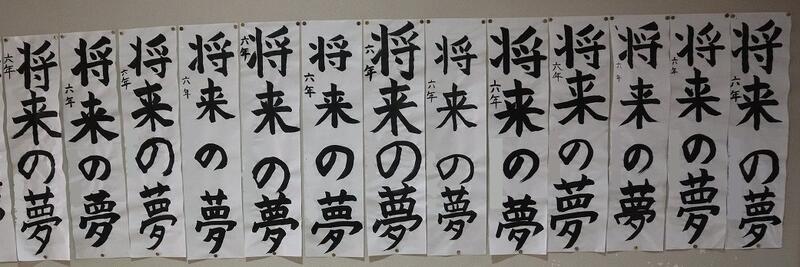 将来の夢
六年
将来の夢
六年
将来の夢
六年
将来の夢
六年
将来の夢
六年
将来の夢
六年
将来の夢
六年
将来の夢
六年
将来の夢
六年
将来の夢
六年
将来の夢
六年
将来の夢
六年
将来の夢
六年